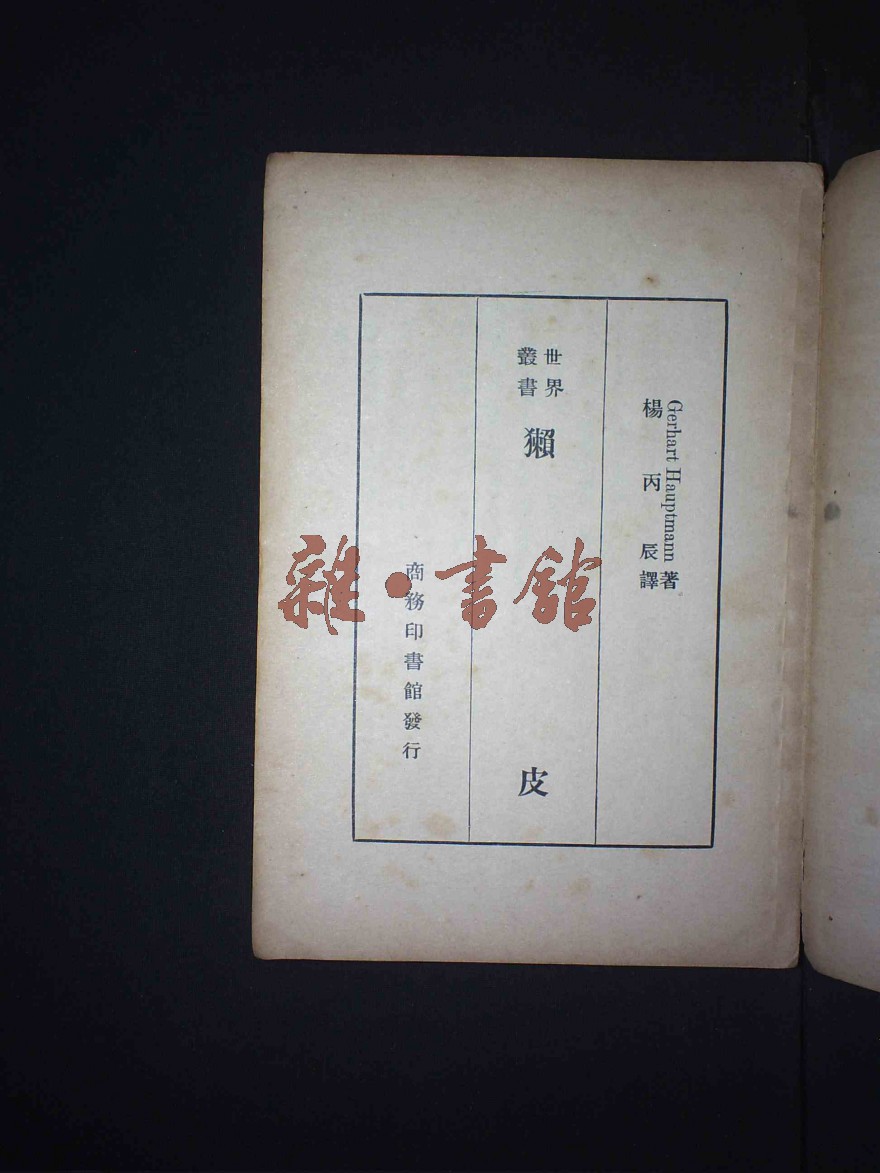 Gerhart Hauptmann 著
楊丙辰譯
世界
叢書
獺皮
商務印書館發行
雜·書館